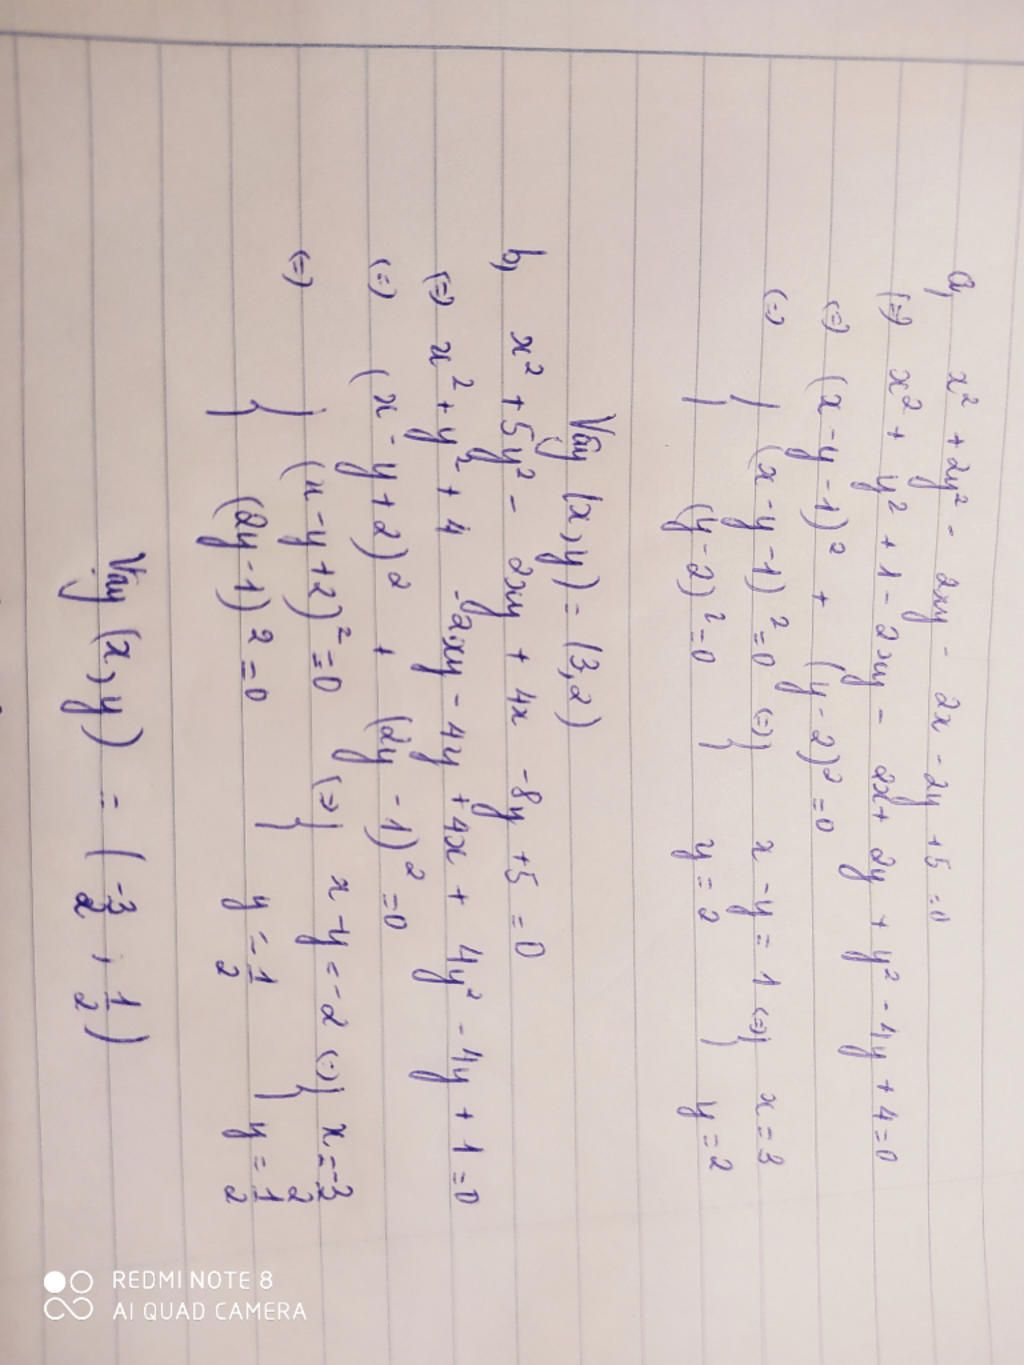 a, x² + 2y² - 2xy - 2x - 2y + 5 = 0
(=) x² + y² + 1 - 2xy - 2x + 2y + y² - 4y + 4 = 0
(=) (x - y - 1)² + (y - 2)² = 0
(=) { (x - y - 1)² = 0 (=) { x - y = 1 (=) { x = 3
(y - 2)² = 0 y = 2 y = 2
Vậy (x, y) = (3, 2)
b, x² + 5y² - 2xy + 4x - 8y + 5 = 0
(=) x² + y² + 4 - 2xy - 4y + 4x + 4y² - 4y + 1 = 0
(=) (x - y + 2)² + (2y - 1)² = 0
(=) { (x - y + 2)² = 0 (=) { x - y = -2 (=) { x = -3/2
(2y - 1)² = 0 y = 1/2 y = 1/2
Vậy (x, y) = (-3/2, 1/2)
REDMI NOTE 8
AI QUAD CAMERA